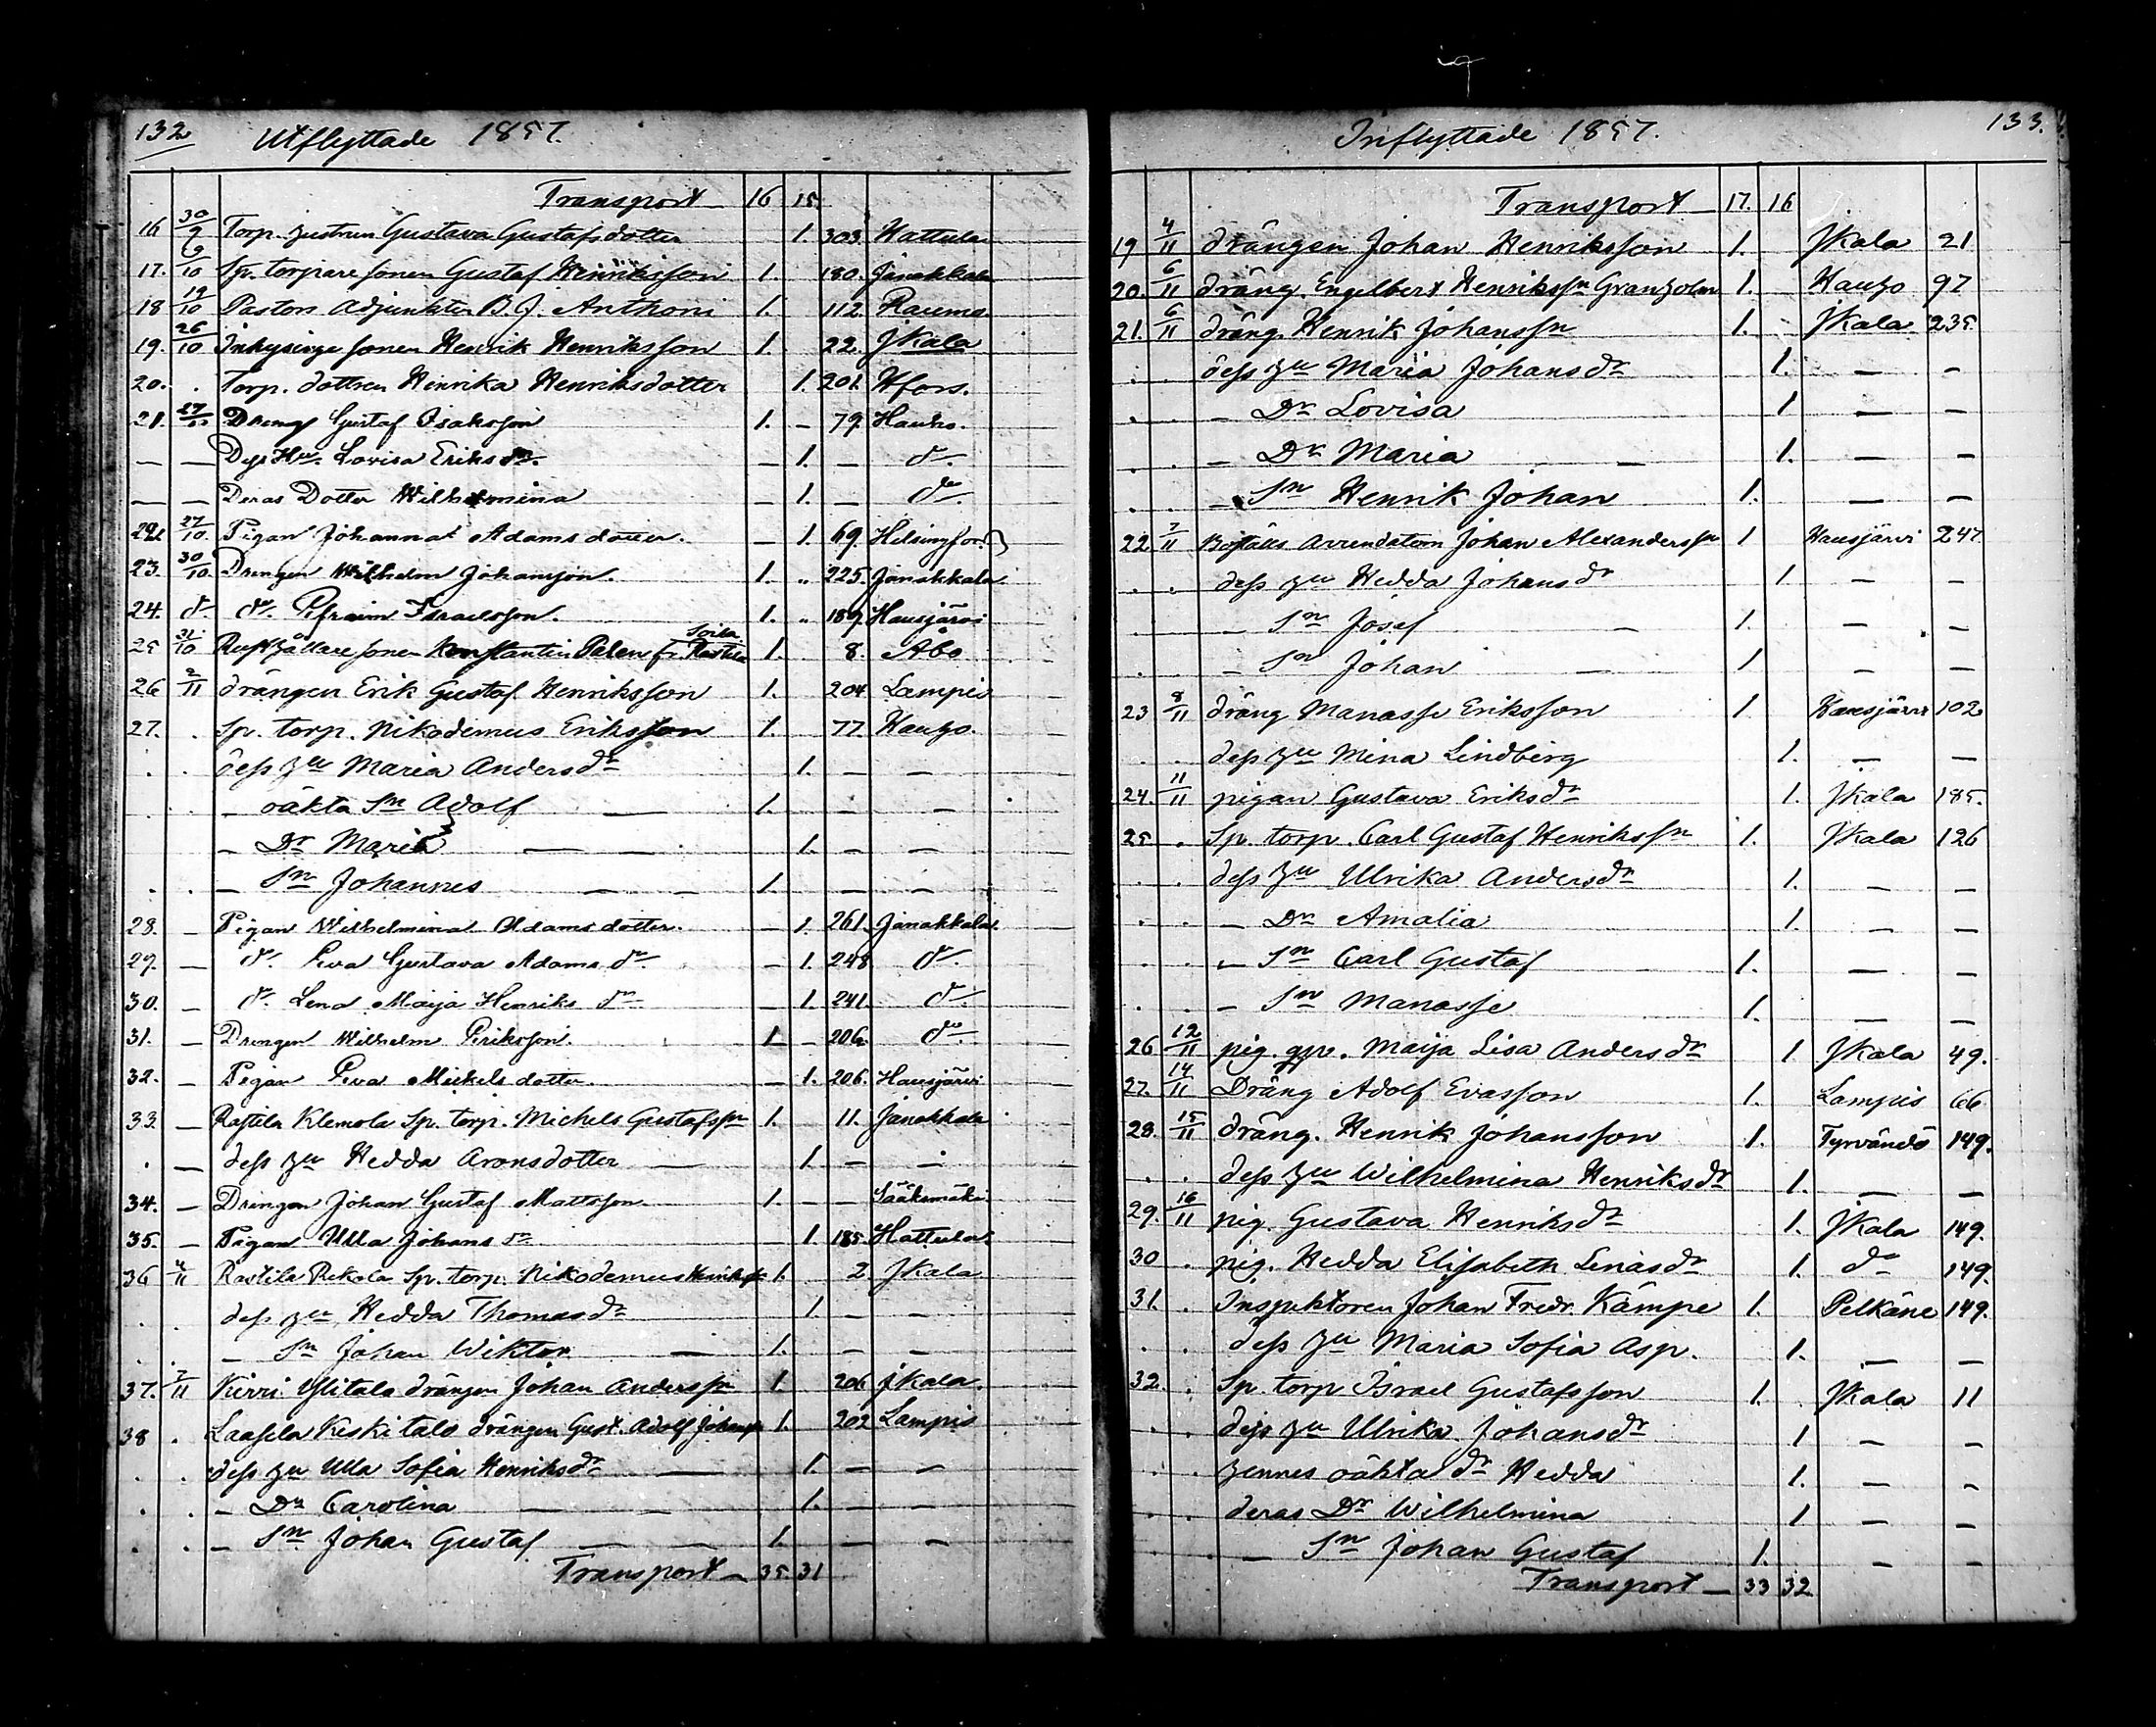 132 Utflyttade 1857.
Transport 16 15.
16 30/9 Torp. hustrun Gustava Gustafsdotter 1. 303. Hattula
17. 9/10 Sp. torpare sonen Gustaf Henriksson 1. 180. Janakkala
18 19/10 Pastors Adjunkten B. J. Anthoni 1. 112. Raumo
19. 26/10 Inhysinge sonen Henrik Henriksson 1. 22. JKala
20. . Torp. dottren Henrika Henriksdotter 1. 201. Hfors.
21. 27/10 Dreng Gustaf Isaksson 1. – 79. Hauho.
— — Dess Hu. Lovisa Eriks dr. — 1. — do.
— — Deras Dotter Wilhelmina — 1. — do
22. 27/10. Pigan Johanna Adamsdotter. — 1. 69. Helsingfors
23. 30/10. Drengen Wilhelm Johansson. 1. „ 225. Janakkala
24. do. do. Efraim Israelsson. 1. „ 189. Hausjärvi
25 31/10 Rusthållare sonen Konstantin Palen fr. 1. 8. Åbo
26 2/11 drängen Erik Gustaf Henriksson 1. 204 Lampis
27. . Sp. torp. Nikodemus Eriksson 1. 77 Hauho.
. . dess hu Maria Andersdr 1. — —
. . — oäkta Sn Adolf — 1. — .
— Dr Maria — — 1. — —
. . — Sn Johannes — — 1. — —
28. — Pigan Wilhelmina Adamsdotter. — 1. 261. Janakkala
29. — do. Eva Gustava Adams dr. — 1. 248 do.
30. — do. Lena Maija Henriks dr — 1. 241. do.
31. — Drengen Wilhelm Eriksson. 1 — 206. do
32. — Pigan Eva Mickelsdotter. — 1. 206. Hausjärvi
33. — Rastila Klemola Sp. torp. Michels Gustafssn 1. 11. Janakkala
. — dess hu Hedda Aronsdotter — 1. — —
34. — Drengen Johan Gustaf Mattsson 1. — — Sääksmäki
35. — Pigan Ulla Johans dr 1. 185. Hattula
36 4/11 Rastila Pekola Sp. torp. Nikodemus Henrikssn 1. 2. JKala
. . dess hu Hedda Thomasdr 1. — —
. . — Sn Johan Wiktor — 1. — —
37. 7/11 Kirri Ylitalo drängen Johan Anderssn 1 206 JKala.
38 . Laasila Keskitalo drängen Gust. Adolf Johanss 1. 202 Lampis
. . dess hu Ulla Sofia Henriksdr — 1. — —
. . — Dr Carolina — 1. — —
. . — Sn Johan Gustaf — 1. — —
Transport — 35. 31
Inflyttade 1857. 133.
Transport — 17. 16
19 4/11 drängen Johan Henriksson 1. JKala 21
20. 6/11 dräng. Engelbert Henrikssn Granholm 1. Hauho 97
21. 6/11 dräng. Henrik Johanssn 1. JKala 235
. . dess hu Maria Johansdr 1. — —
. . — Dr Lovisa 1 — —
. . — Dr Maria — 1. — —
. . — Sn Henrik Johan 1. — —
22. 7/11 Boställs Arrendatorn Johan Alexanderssn 1 Hausjärvi 247.
. . dess hu Hedda Johansdr 1 — —
— Sn Josef — 1. — —
. . — Sn Johan — 1 — —
23 8/11 dräng Manasse Eriksson 1 Hausjärvi 102
. . dess hu Mina Lindberg 1. — —
24. 11/11 pigan Gustava Eriksdr 1. JKala 185.
25. . Sp. torp. Carl Gustaf Henrikssn 1. JKala 126
. . dess hu Ulrika Andersdr 1. — —
. . — Dr Amalia 1. — —
. . — Sn Carl Gustaf 1. — —
. . — Sn Manasse 1. — —
26 12/11 pig. Maija Lisa Andersdr 1. JKala 49.
27. 14/11 Dräng Adolf Evasson 1. Lampis 66
28. 15/11 dräng. Henrik Johansson 1. Tyrvändö 149.
. . dess hu Wilhelmina Henriksdr 1. — —
29. 16/11 pig. Gustava Henriksdr 1. JKala 149.
30 . pig. Hedda Elisabeth Lenasdr 1. do 149.
31. . Inspektoren Johan Fredr. Kämpe 1. Pelkäne 149.
. . dess hu Maria Sofia Asp. 1. — —
32. . Sp. torp Israel Gustafsson 1. JKala 11
. . dess hu Ulrika Johansdr 1 — —
. . hennes oäkta dr Hedda 1. — —
. . deras Dr Wilhelmina 1 — —
. . — Sn Johan Gustaf 1. — —
Transport — 33 32